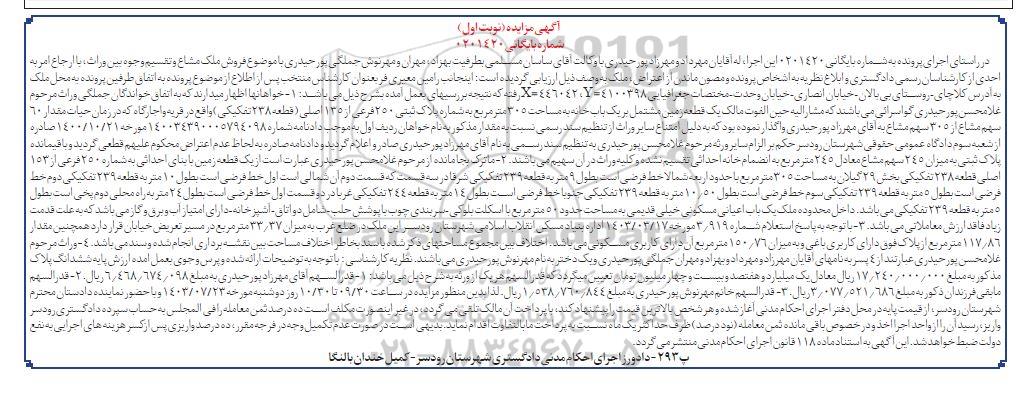 آگهی مزایده (نوبت اول)
شماره بایگانی ۰۲۰۱۴۲۰
در راستای اجرای پرونده به شماره بایگانی ۰۲۰۱۴۲۰ این اجرا، له آقایان مهرداد و مهرزاد پورحیدری با وکالت آقای ساسان مسلمی بطرفیت بهزاد، مهران و مهرنوش جملگی پورحیدری با موضوع فروش ملک مشاع و تقسیم وجوه بین وراث، با ارجاع امر به
احدی از کارشناسان رسمی دادگستری و ابلاغ نظریه به اشخاص پرونده و مصون ماندن از اعتراض، ملک به وصف ذیل ارزیابی گردیده است: اینجانب رامین معیری فر بعنوان کارشناس منتخب پس از اطلاع از موضوع پرونده به اتفاق طرفین پرونده به محل ملک
به آدرس کلاچای-روستای بی بالان-خیابان انصاری-خیابان وحدت-مختصات جغرافیایی X=۴۴۶۰۴۲،Y=۴۱۰۰۳۹۸ رفته که نتیجه بررسیهای بعمل آمده بشرح ذیل می باشد: ۱- خواهانها اظهار میدارند که به اتفاق خواندگان جملگی وراث مرحوم
غلامحسن پورحیدری گواسرائی می باشند که مشارالیه حین الفوت مالک یک قطعه زمین مشتمل بر یک باب خانه به مساحت ۳۰۵ مترمربع به شماره پلاک ثبتی ۲۵۰ فرعی از ۱۳۵ اصلی (قطعه ۲۳۸ تفکیکی) واقع در قریه واجارگاه که در زمان حیات مقدار ۶۰
سهم مشاع از ۳۰۵ سهم مشاع به آقای مهرزاد پورحیدری واگذار نموده بود که به دلیل امتناع سایر وراث از تنظیم سند رسمی نسبت به مقدار مذکور به نام خواهان ردیف اول به موجب دادنامه شماره ۱۴۰۰۳۴۳۹۰۰۰۵۷۹۴۰۹۸ مورخه ۱۴۰۰/۱۰/۲۱ صادره
از شعبه سوم دادگاه عمومی حقوقی شهرستان رودسر حکم بر الزام سایر ورثه مرحوم غلامحسن پورحیدری به تنظیم سند رسمی به نام آقای مهرزاد پورحیدری صادر و اعلام گردید و دادنامه صادره به لحاظ عدم اعتراض محکوم علیهم قطعی گردید و باقیمانده
پلاک ثبتی به میزان ۲۴۵ سهم مشاع معادل ۲۴۵ مترمربع به انضمام خانه احداثی تقسیم نشده و کلیه وراث در آن سهیم می باشند. ۲- ماترک بجامانده از مرحوم غلامحسن پورحیدری عبارت است از یک قطعه زمین با بنای احداثی به شماره ۲۵۰ فرعی از ۱۵۳
اصلی قطعه ۲۳۸ تفکیکی بخش ۲۹ گیلان به مساحت ۳۰۵ مترمربع با حدود اربعه شمالا خط فرضی است بطول ۹ متر به قطعه ۲۳۹ تفکیکی شرقا در سه قسمت که قسمت دوم آن شمالی است اول خط فرضی است بطول ۱۰ متر به قطعه ۲۳۹ تفکیکی دوم خط
فرضی است بطول ۵ متر به قطعه ۲۳۹ تفکیکی سوم خط فرضی است بطول ۱۰/۵۰ متر به قطعه ۲۳۹ تفکیکی جنوبا خط فرضی است بطول ۱۴ متر به قطعه ۲۴۴ تفکیکی غربا در دو قسمت اول خط فرضی است بطول ۲۴ متر به راه محلی دوم پخی است بطول
۵ متر به قطعه ۲۳۹ تفکیکی می باشد. داخل محدوده ملک یک باب اعیانی مسکونی خیلی قدیمی به مساحت حدود ۵۰ مترمربع با اسکلت بلوکی-سربندی چوب با پوشش حلب-شامل دو اتاق-آشپزخانه-دارای امتیاز آب و برق و گاز می باشد که به علت قدمت
زیاد فاقد ارزش معاملاتی می باشد. ۳- با توجه به پاسخ استعلام شماره ۳٫۹۱۹ مورخه ۱۴۰۳/۰۳/۱۷ اداره بنیاد مسکن انقلاب اسلامی شهرستان رودسر، این ملک در ضلع غرب به میزان ۳۷٫۳۳ مترمربع در مسیر تعریض خیابان قرار دارد همچنین مقدار
۱۱۷٫۸۶ مترمربع از پلاک فوق دارای کاربری باغی و به میزان ۱۵۰٫۷۶ مترمربع آن دارای کاربری مسکونی می باشد. اختلاف بین مجموع مساحتهای ذکر شده با سند بخاطر اختلاف مساحت بین نقشه برداری انجام شده و سند می باشد. ۴- وراث مرحوم
غلامحسن پورحیدری عبارتند از ۴ پسر به نامهای آقایان مهرزاد و مهرداد و بهزاد و مهران جملگی پورحیدری و یک دختر به نام مهرنوش پورحیدری می باشند. نظریه کارشناسی: با توجه به توضیحات ارائه شده و پرس و جوی بعمل آمده ارزش پایه ششدانگ پلاک
مذکور به مبلغ ۱۷٫۲۴۰٫۰۰۰٫۰۰۰ ریال معادل یک میلیارد و هفتصد و بیست و چهار میلیون تومان تعیین میگردد که قدرالسهم هر یک از ورثه به شرح ذیل می باشد: ۱-قدرالسهم آقای مهرزاد پورحیدری به مبلغ ۶٫۴۶۸٫۶۷۴٫۰۹۸ ریال. ۲-قدرالسهم
مابقی فرزندان ذکور به مبلغ ۳٫۰۷۷٫۵۲۱٫۶۸۶ ریال. ۳- قدرالسهم خانم مهرنوش پورحیدری به مبلغ ۱٫۵۳۸٫۷۶۰٫۸۴۴ ریال. لذا بدین منظور مزایده در ساعت ۰۹/۳۰ تا ۱۰/۳۰ روز دوشنبه مورخه ۱۴۰۳/۰۷/۲۳ با حضور نماینده دادستان محترم
شهرستان رودسر، از قیمت پایه در محل دفتر اجرای احکام مدنی آغاز شده و هر شخص بالاترین قیمت را پیشنهاد کند، با پرداخت آن مالک تلقی می گردد، در غیر اینصورت مکلف است ده درصد ثمن معامله را فی المجلس به حساب سپرده دادگستری رودسر
واریز، رسید آن را از واحد اجرا اخذ و در خصوص باقی مانده ثمن معامله (نود درصد) ظرف حداکثر یک ماه نسبت به پرداخت مابالتفاوت اقدام نماید. بدیهی است در صورت عدم تکمیل وجه در فرجه مقرر، ده درصد واریزی پس از کسر هزینه های اجرایی به نفع
دولت ضبط خواهد شد. این آگهی به استناد ماده ۱۱۸ قانون اجرای احکام مدنی منتشر می گردد.
پ۲۹۳-دادورز اجرای احکام مدنی دادگستری شهرستان رودسر-کمیل خندان بالنگا
۰۲۱-۸۸۳۴۹۶۷۰